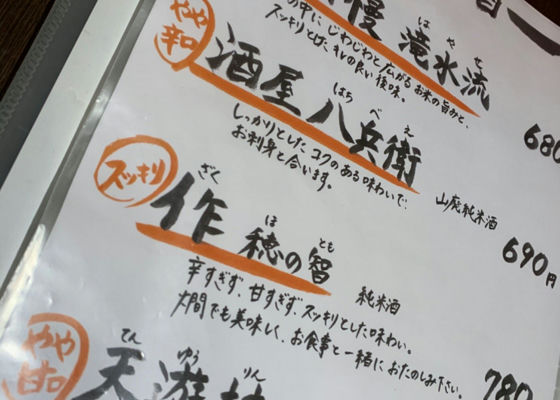 やや
辛口
滝水流
はやせ
の中に じわじわと広がるお米の旨みと、
スッキリとした キレの良い後味。
680
酒屋八兵衛
はちべえ
しっかりとした コクのある味わいで、
お刺身と合います。
山廃純米酒
690円
スッキリ
作 穂の智
ざく ほ とも
純米酒
辛すぎず、甘すぎず、スッキリとした味わい。
お燗でも美味しく、お食事と一緒に おたのしみ下さい。
780
やや
甘口
天遊琳
てん ゆう りん